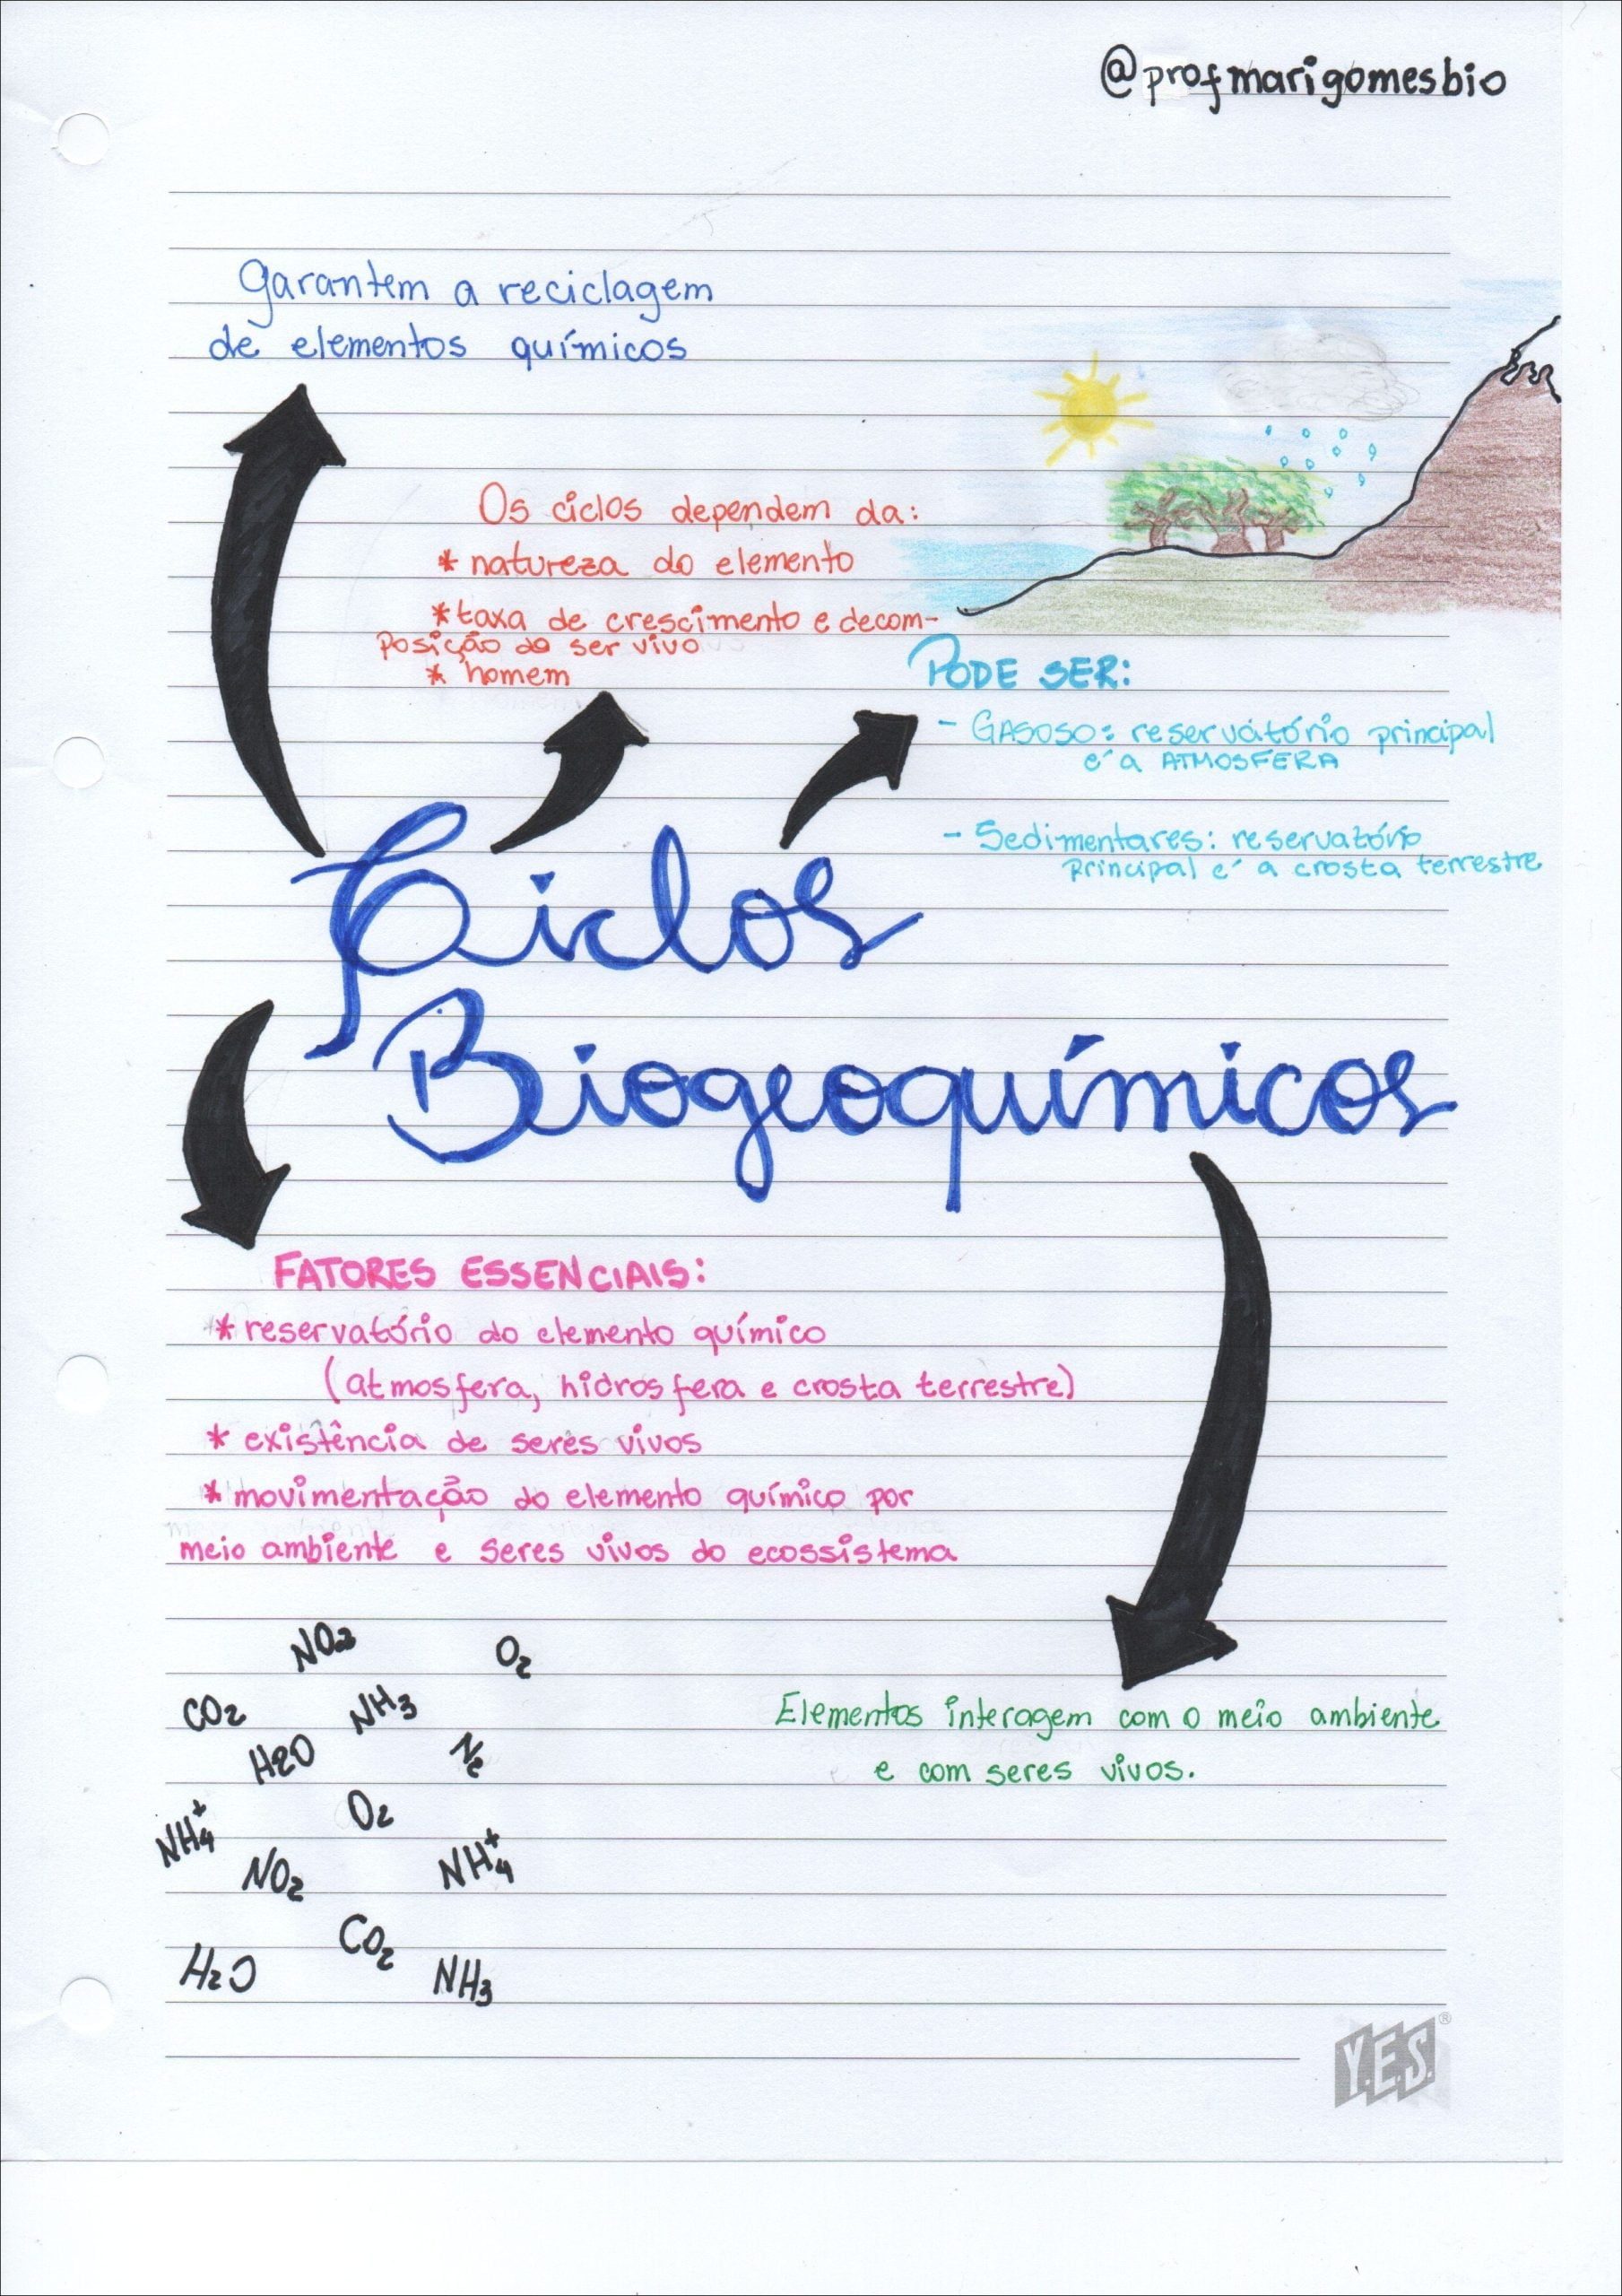 @profmarigomesbio
Garantem a reciclagem
de elementos químicos
Os ciclos dependem da:
* natureza do elemento
* taxa de crescimento e decom-
posição do ser vivo
* homem
PODE SER:
- GASOSO: reservatório principal
é a ATMOSFERA
- Sedimentares: reservatório
principal é a crosta terrestre
Ciclos
Biogeoquímicos
FATORES ESSENCIAIS:
* reservatório do elemento químico
(atmosfera, hidrosfera e crosta terrestre)
* existência de seres vivos
* movimentação do elemento químico por
meio ambiente e seres vivos do ecossistema
NO2 O2
CO2 NH3
H2O N2
O2
NH4+ NH4+
NO2
CO2
H2O NH3
Elementos interagem com o meio ambiente
e com seres vivos.
Y.E.S.®